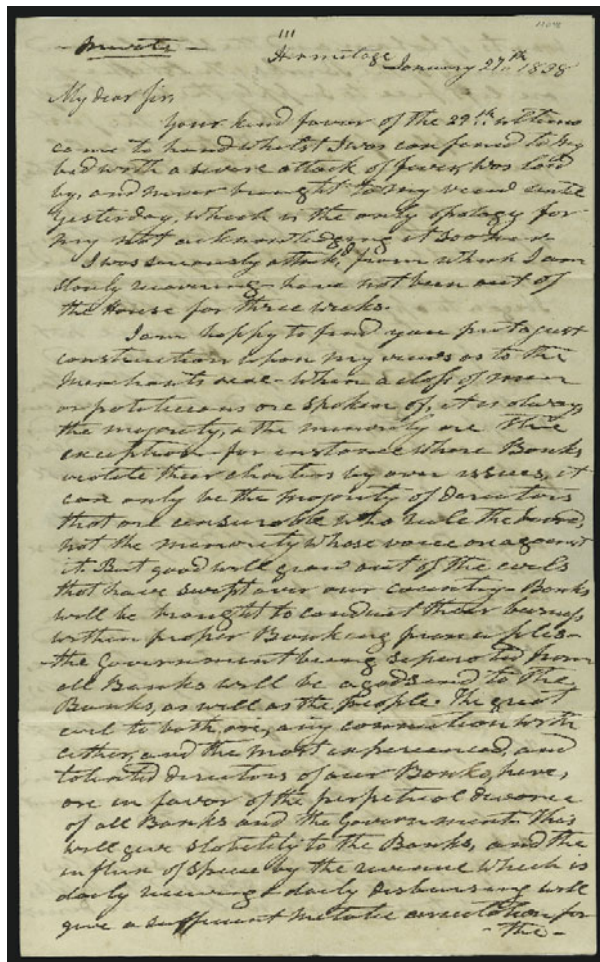 - Private -
Hermitage
January 27th 1838
My dear Sir,
Your kind favor of the 29th ultimo
came to hand whilst I was confined to my
bed with a severe attack of fever, was laid
by, and never brought to my view until
yesterday, which is the only apology for
my not acknowledging it sooner.
I was seriously attack'd, from which I am
slowly recovering - have not been out of
the House for three weeks.
I am happy to find you put a just
construction upon my views as to the
Merchants - When a class of men
or politicians are spoken of, it is always
the majority, & the minority are the
exception - for instance where Banks
violate their charters by over issues, it
can only be the majority of directors
that are censurable who rule the board,
not the minority whose voice are against
it. But good will grow out of the evils
that have swept over our country - Banks
will be brought to conduct their business
within proper Banking principles -
the Government being seperated from
all Banks will be a godsend to the
Banks, as well as the people. The great
evil to both is, any connection with
either, and the most experienced, and
talented directors of our Banks, here,
are in favor of the perpetual divorce
of all Banks and the Government. This
will give stability to the Banks, and the
influx of specie by the revenue which is
daily receiving & daily disbursing will
give a sufficient metalic circulation for
- the -